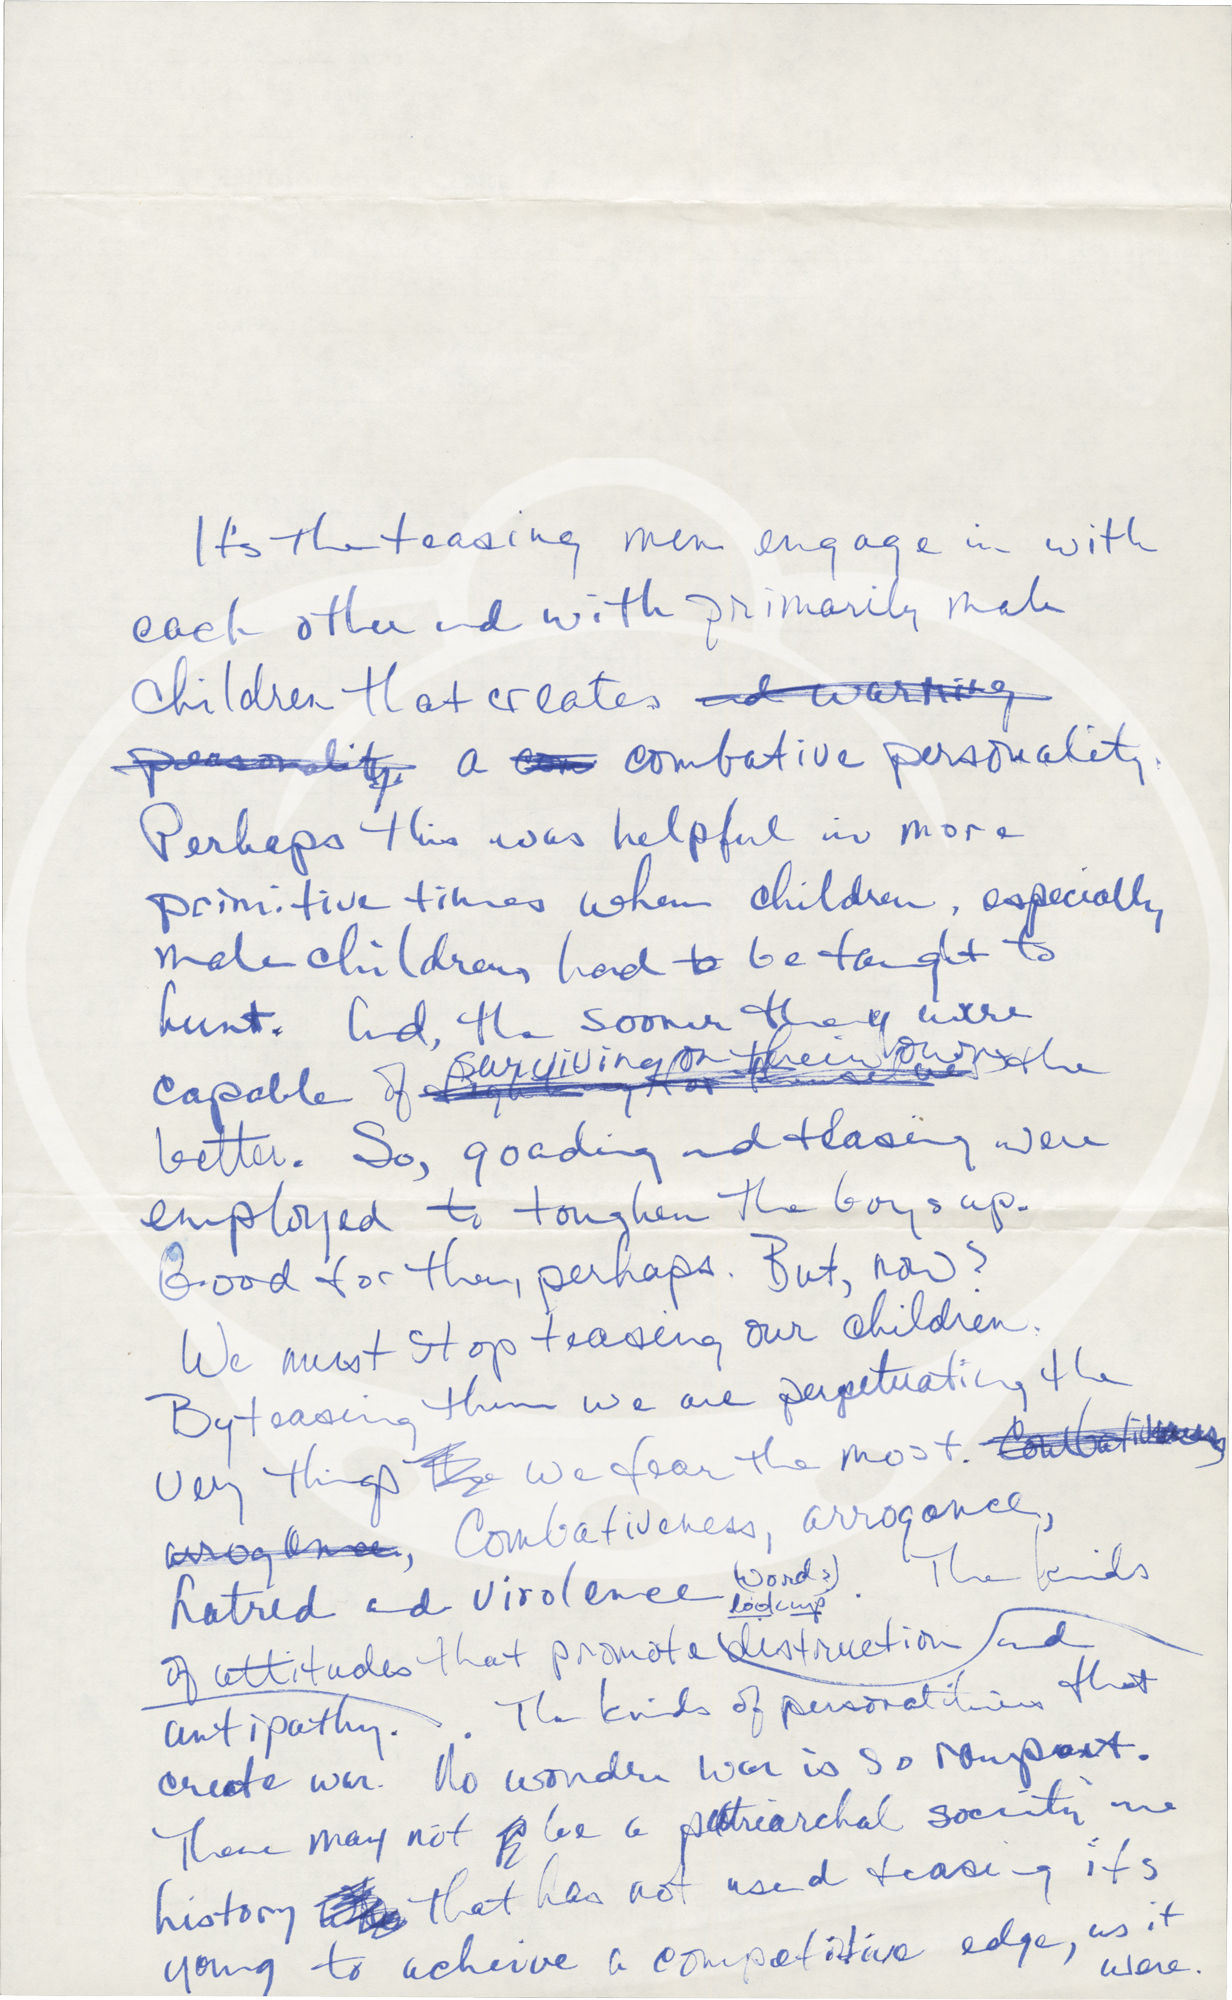 It's the teasing men engage in with
each other and with primarily male
children that creates and warring
personality. a com combative personality.
Perhaps this was helpful in more
primitive times when children, especially
male children, had to be taught to
hunt. And, the sooner they were
surviving on their own
capable of fighting for themselves the
better. So, goading and teasing were
employed to toughen the boys up.
Good for them, perhaps. But, now?
We must stop teasing our children.
By teasing them we are perpetuating the
very things we fear the most. Combativeness
arrogance, Combativeness, arrogance,
hatred and virolence (word?) . The kinds
look up
of attitudes that promote destruction and
antipathy. . The kinds of personalities that
create war. No wonder war is so rampant.
There may not be a patriarchal society in
history that has not used teasing it's
young to acheive a competitive edge, as it
were.